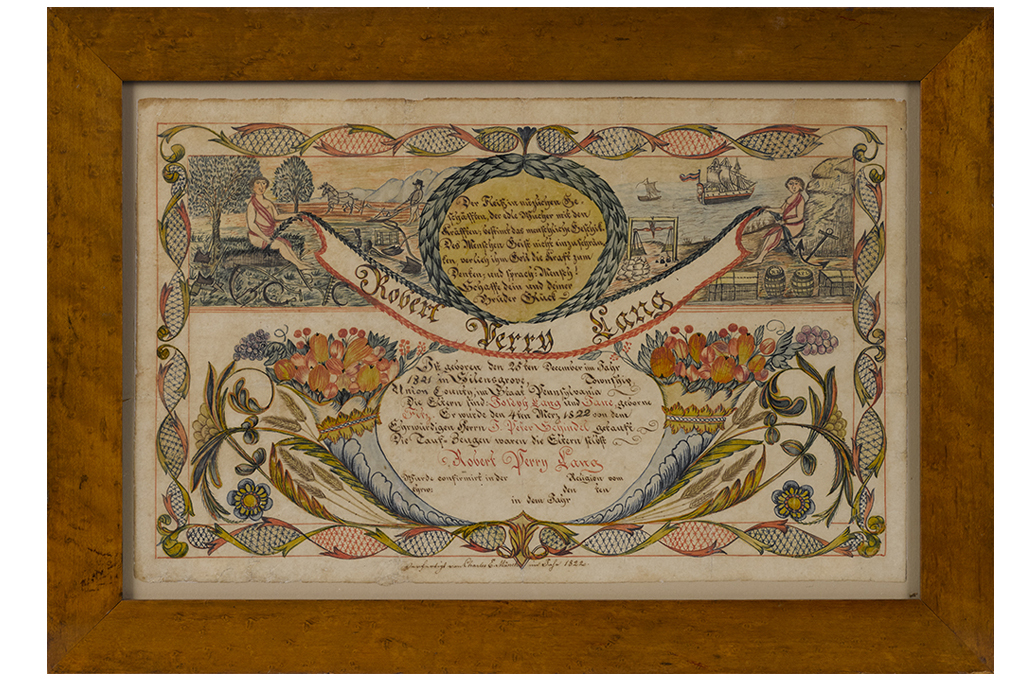 Der Fleiß in nüzlichen Ge-
schäfften, der edle Wucher mit den
Kräfften; bestimt das menschliche Geschick.
Des Menschen Geist nicht einzuschrän-
ken verlieh ihm Gott die Kraft zum
Denken; und sprach: Mensch!
Schaffe dein und deiner
Brüder Glück
Robert Perry Lang
Ist geboren den 28ten December im Jahr
1821 in Township,
Union County, im Staat Pennsylvania
Die Eltern sind: Joseph Lang und Jane geborne
Er wurde den 4ten Merz 1822 von dem
Ehrwürdigen Herrn J. Peter Schindel getauft.
Die Tauf-Zeugen waren die Eltern selbst
Robert Perry Lang
Wurde confirmirt in der Religion vom
Ehrw: den ten
in dem Jahr
Verfertigt von im Jahr 1822.